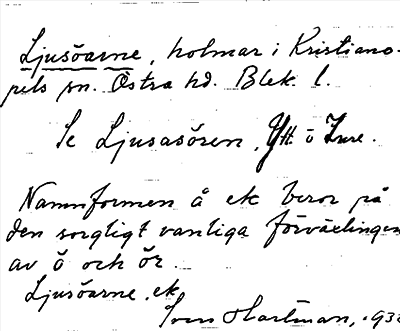 Ljusöarne, holmar i Kristiano-
pels sn. Östra hd. Blek. l.
Se Ljusasören, Ytt. o Inre.
Namnformen å ek beror på
den sorgligt vanliga förväxlingen
av ö och ör.
Ljusöarne, ek.
Sven Hartman, 193